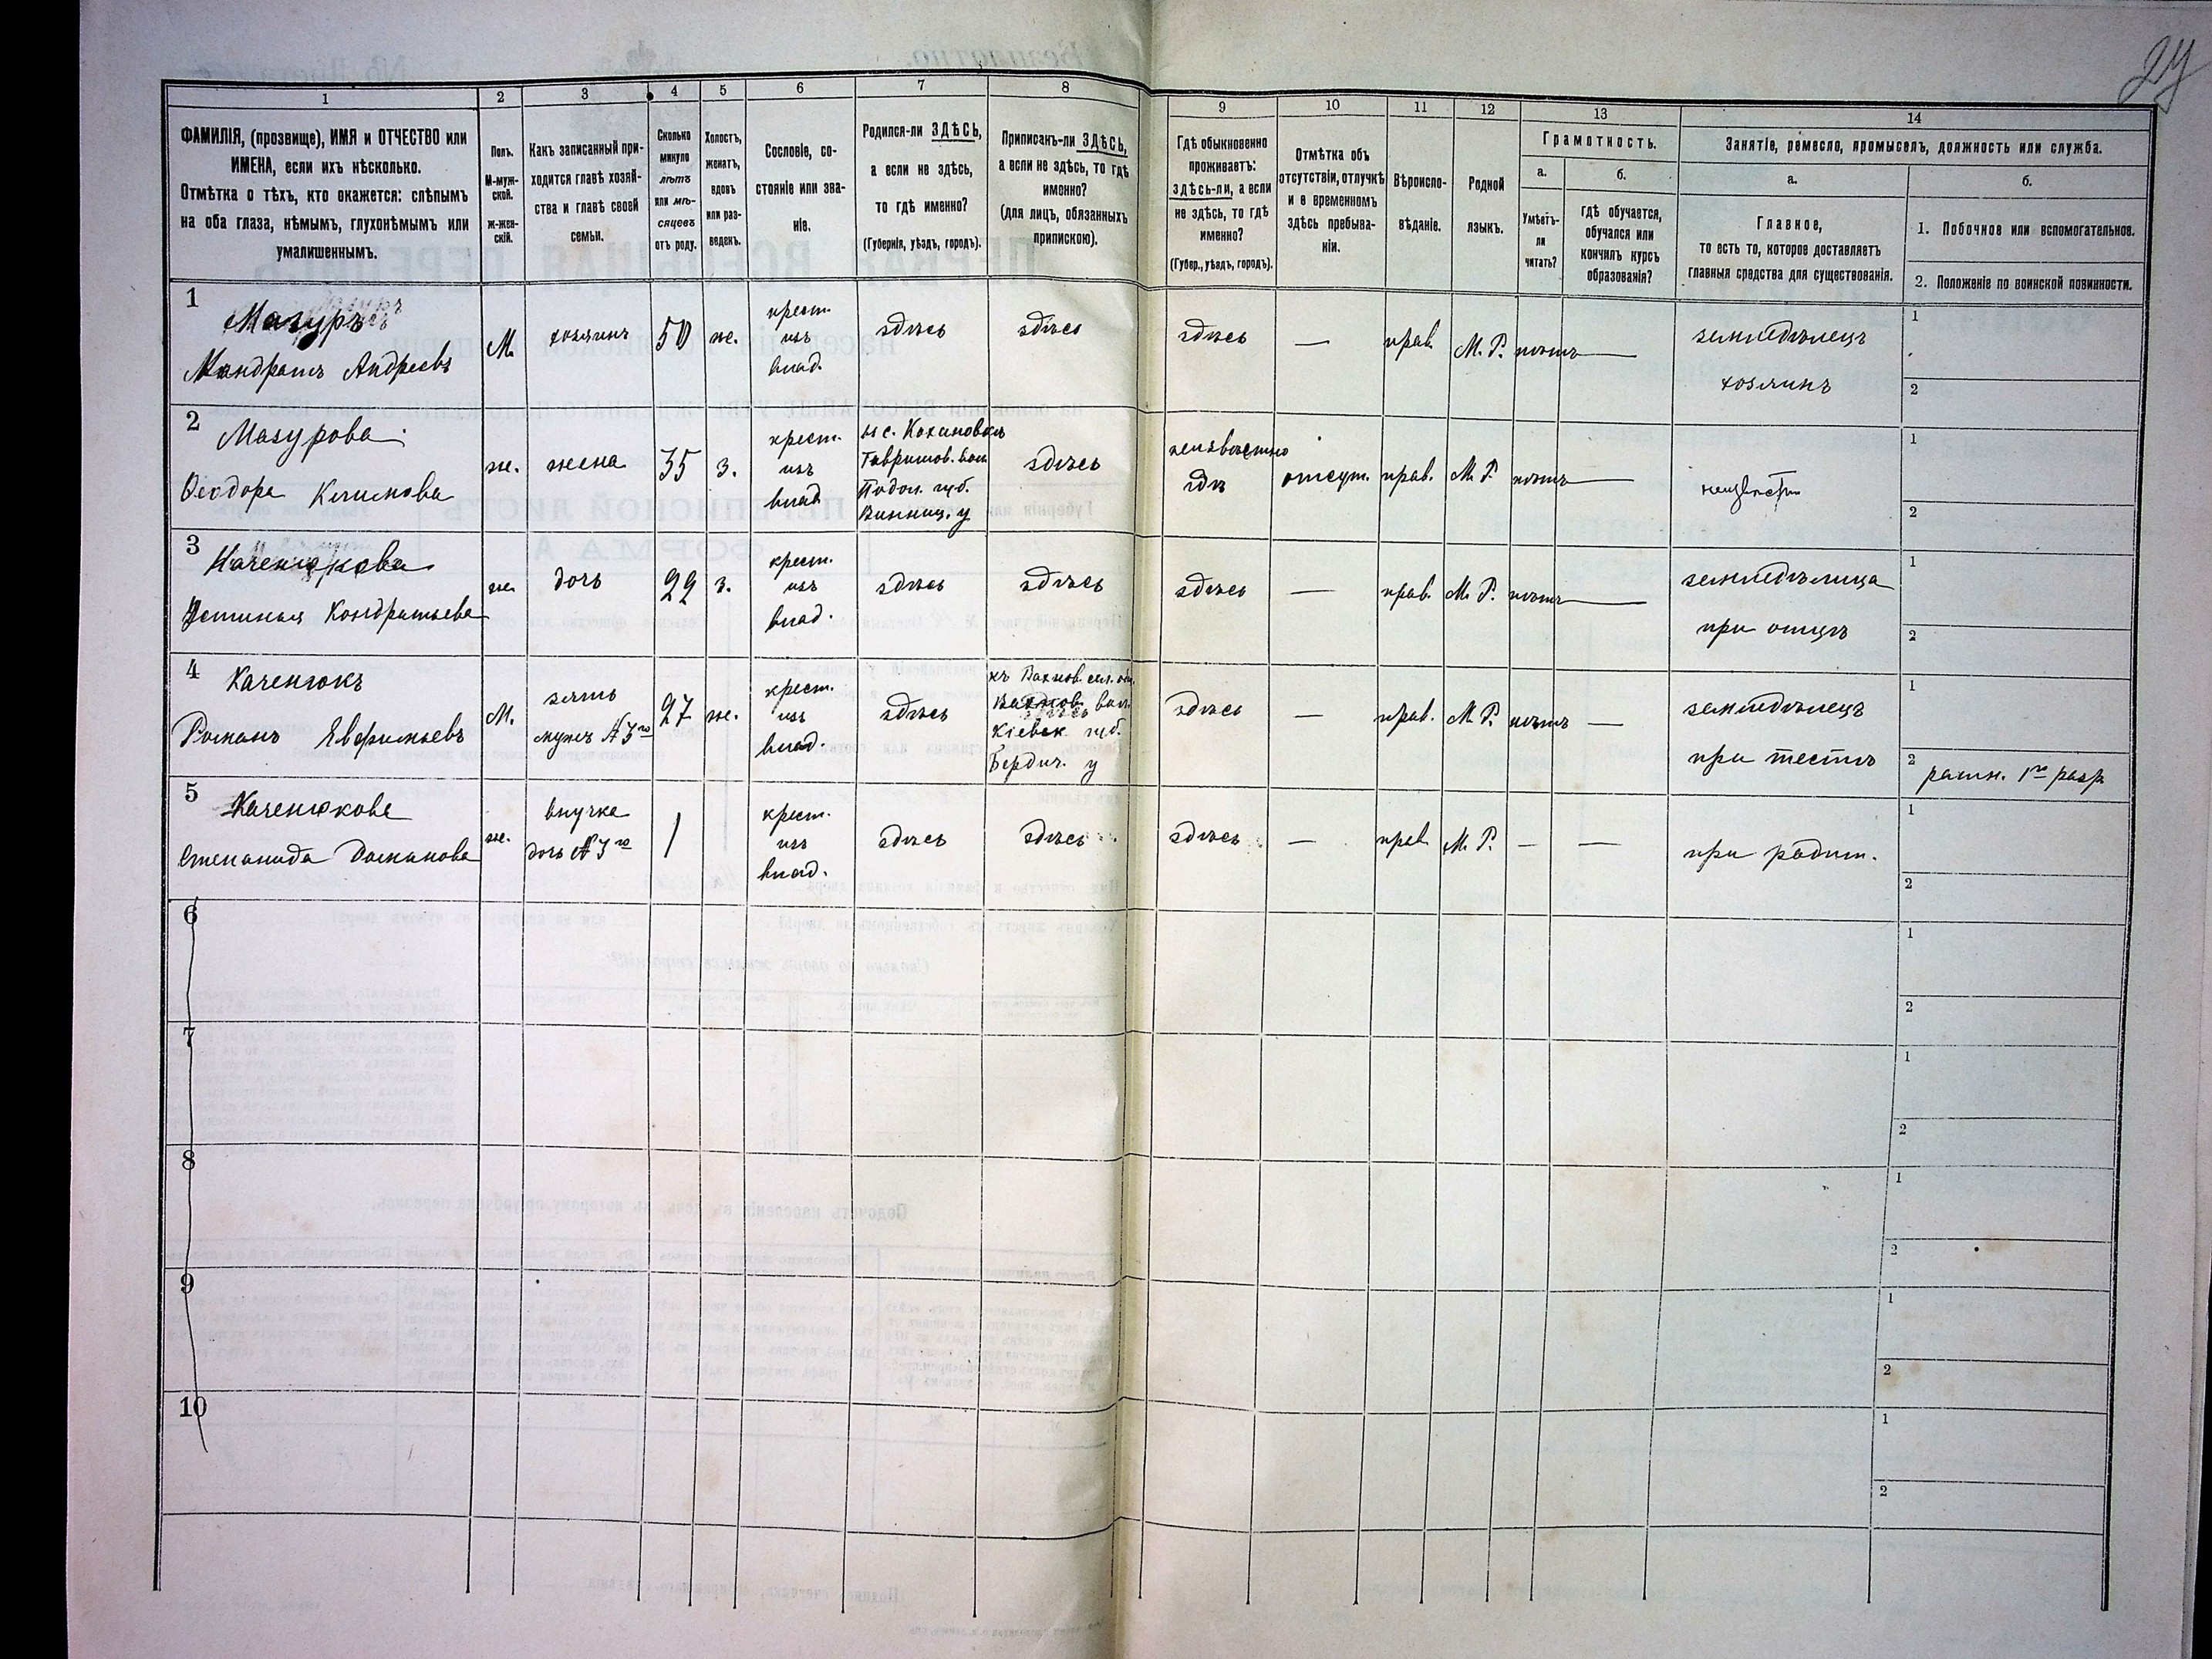 24
1
2
3
4
5
6
7
8
9
10
11
12
13
14
ФАМИЛІЯ, (прозвище), ИМЯ и ОТЧЕСТВО или
ИМЕНА, если ихъ нѣсколько.
Отмѣтка о тѣхъ, кто окажется: слѣпымъ
на оба глаза, нѣмымъ, глухонѣмымъ или
умалишеннымъ.
Полъ.
М-муж-
ской.
ж-жен-
скій.
Какъ записанный при-
ходится главѣ хозяй-
ства и главѣ своей
семьи.
Сколько
минуло
лѣтъ
или мѣ-
сяцевъ
отъ роду.
Холостъ,
женатъ,
вдовъ
или раз-
веденъ.
Сословіе, со-
стояніе или зва-
ніе.
Родился-ли ЗДѢСЬ,
а если не здѣсь,
то гдѣ именно?
(Губернія, уѣздъ, городъ).
Приписанъ-ли ЗДѢСЬ,
а если не здѣсь, то гдѣ
именно?
(для лицъ, обязанныхъ
припискою).
Гдѣ обыкновенно
проживаетъ:
здѣсь-ли, а если
не здѣсь, то гдѣ
именно?
(Губер., уѣздъ, городъ).
Отмѣтка объ
отсутствіи, отлучкѣ
и о временномъ
здѣсь пребыва-
ніи.
Вѣроиспо-
вѣданіе.
Родной
языкъ.
Грамотность.
а.
Умѣетъ-
ли
читать?
б.
гдѣ обучается,
обучался или
кончилъ курсъ
образованія?
Занятіе, ремесло, промыселъ, должность или служба.
а.
Главное,
то есть то, которое доставляетъ
главныя средства для существованія.
б.
1. Побочное или вспомогательное.
2. Положеніе по воинской повинности.
1
Мазуръ
Кондратъ Андреевъ
М.
хозяинъ
50
ж.
крест.
изъ
влад.
здѣсь
здѣсь
здѣсь
—
прав.
М. Р.
нѣтъ —
земледѣлецъ
хозяинъ
1
2
2
Мазурова
Ѳеодора Климова
ж.
жена
35
з.
крест.
изъ
влад.
Подол. губ.
Винниц. у
здѣсь
неизвѣстно
гдѣ
отсут.
прав.
М. Р.
нѣтъ —
неизвѣстно
1
2
3
Каченюкова
Устинья Кондратьева
ж.
дочь
22
з.
крест.
изъ
влад.
здѣсь
здѣсь
здѣсь
—
прав.
М. Р.
нѣтъ —
земледѣлица
при отцѣ
1
2
4
Каченюкъ
Романъ Евфимьевъ
М.
зять
мужъ №3го
27
ж.
крест.
изъ
влад.
здѣсь
къ Вахнов. сел. об.
Вахнов. вол.
Кіевск. губ.
Бердич. у
здѣсь
—
прав.
М. Р.
нѣтъ —
земледѣлецъ
при тестѣ
1
2
ратн. 1го разр.
5
Каченюкова
Степанида Романова
ж.
внучка
дочь №3го
1
крест.
изъ
влад.
здѣсь
здѣсь
здѣсь
—
прав.
М. Р.
—
—
при родит.
1
2
6
1
2
7
1
2
8
1
2
9
1
2
10
1
2